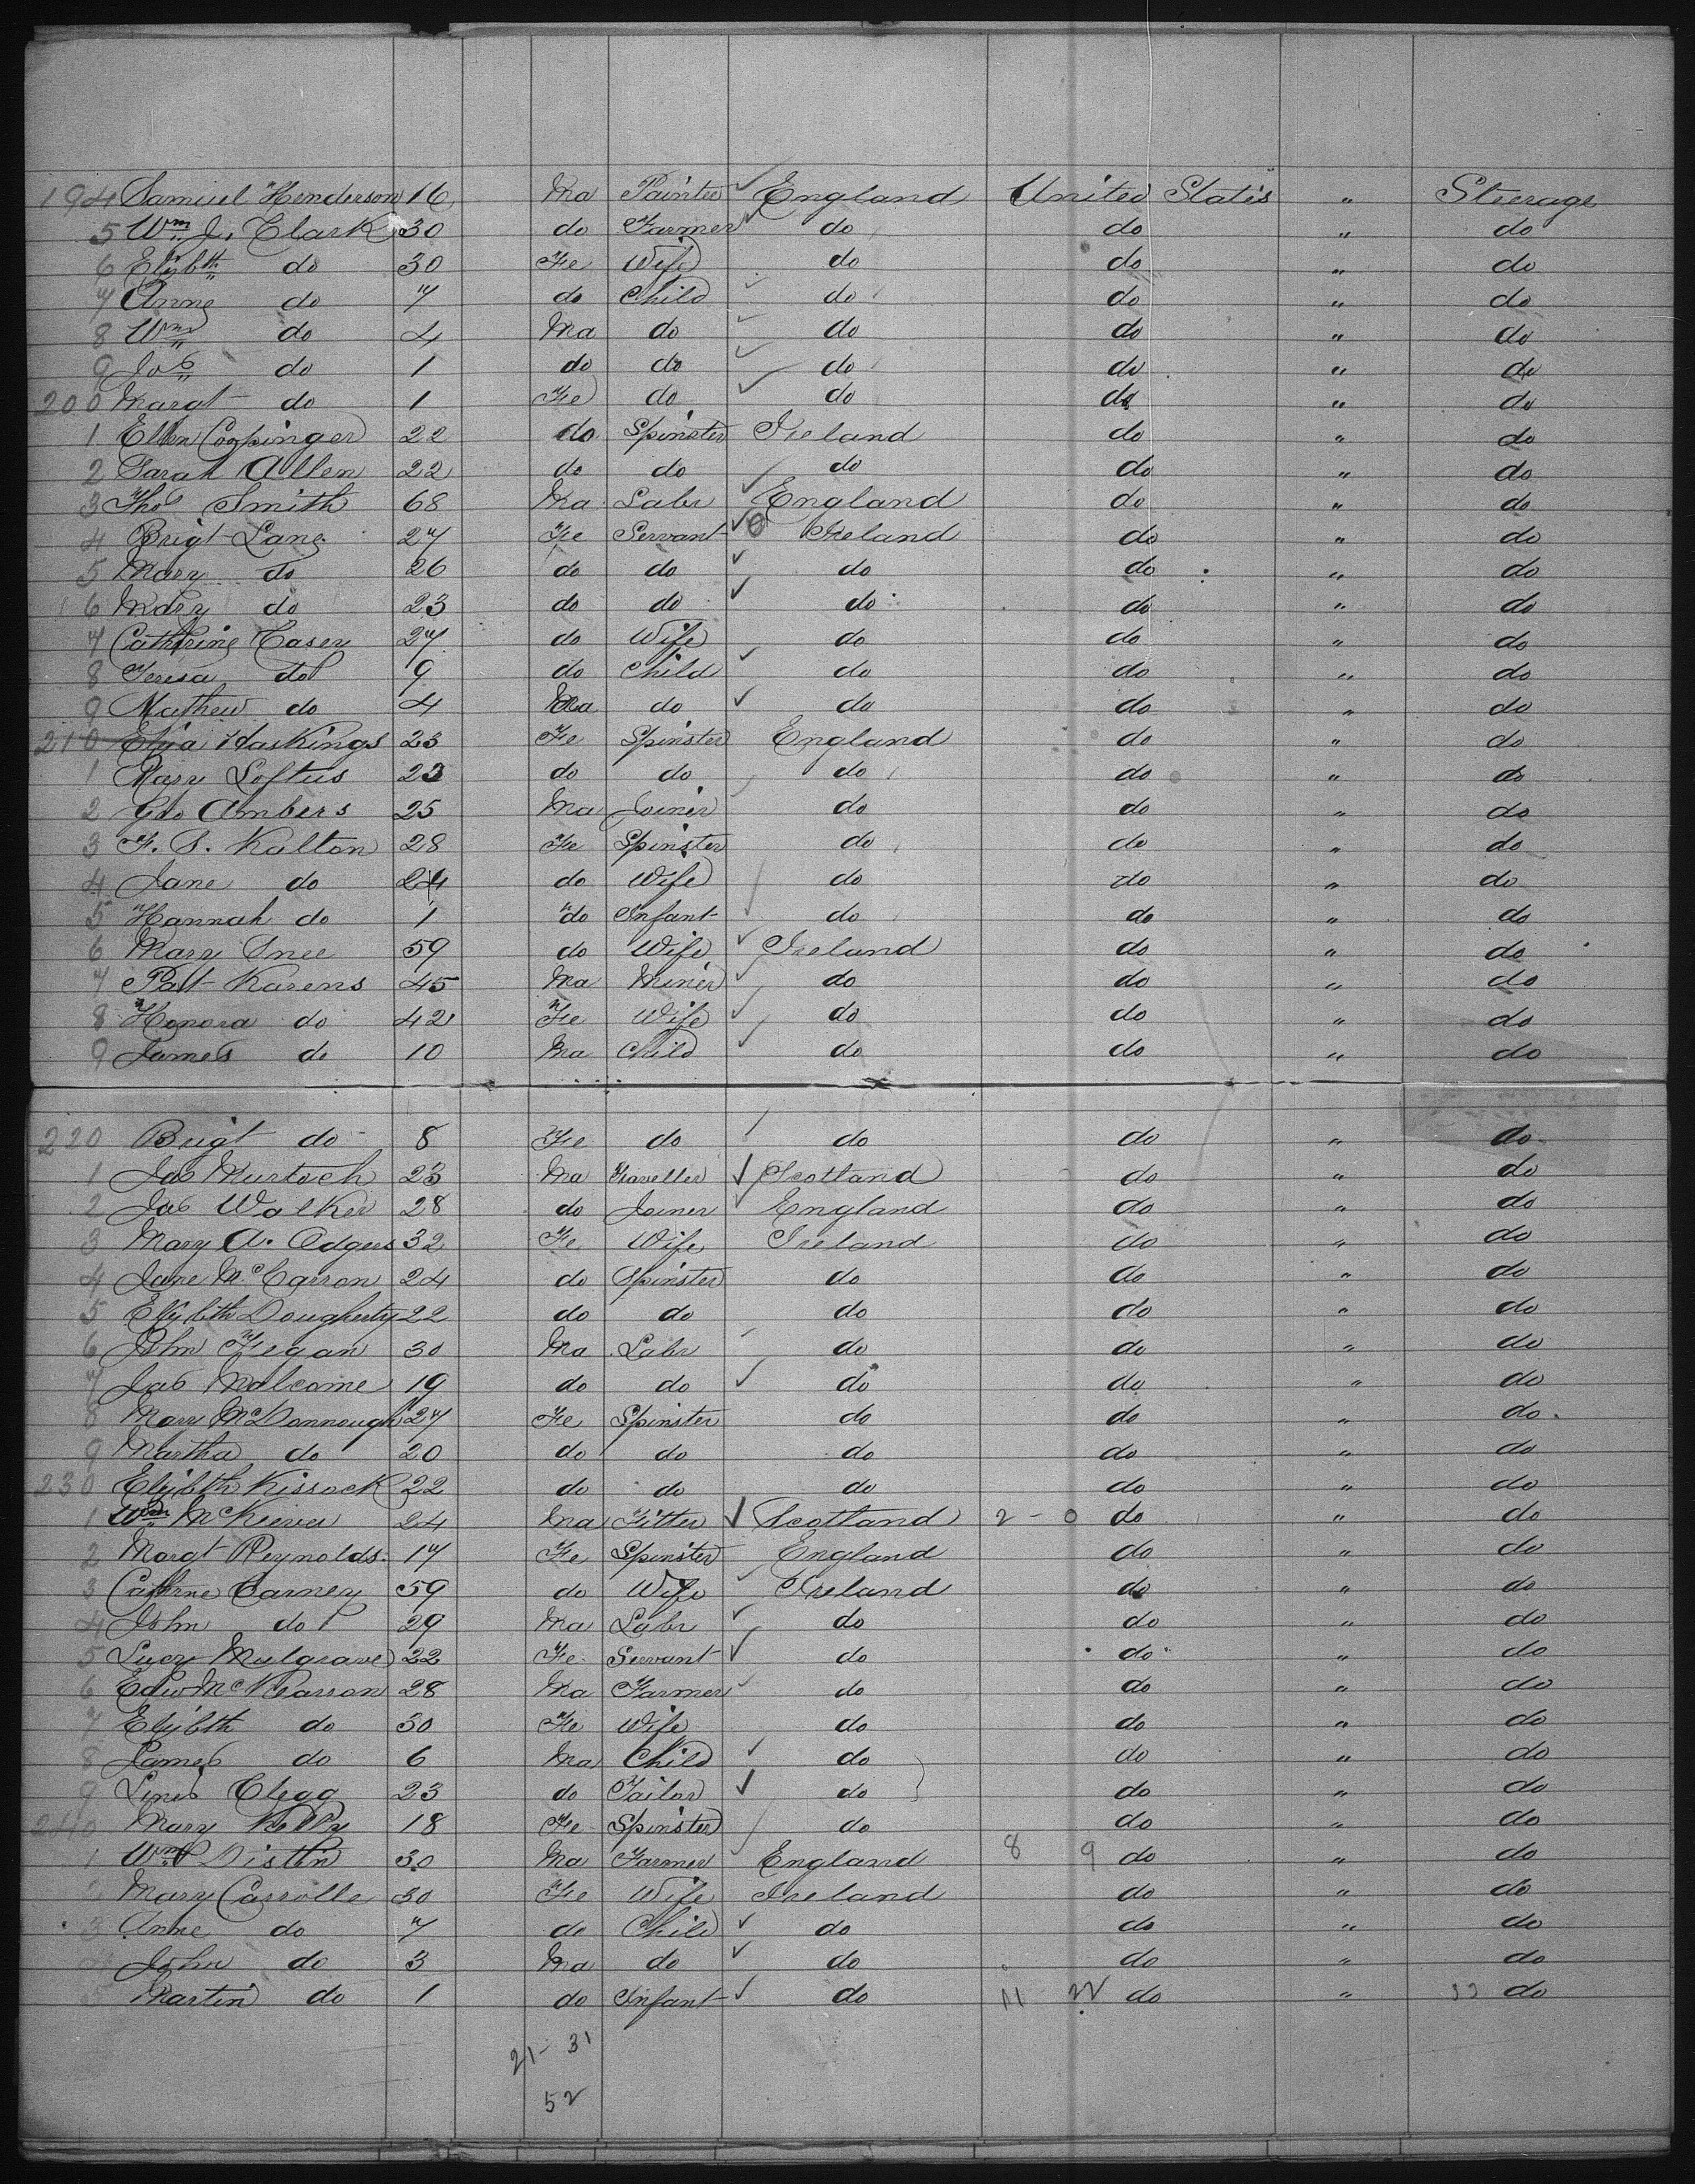 194 Samuel Henderson 16 Ma Painter England United States " Steerage
5 Wm J. Clark 30 do Farmer do do " do
6 Elizbth do 30 Fe Wife do do " do
7 Anne do 7 do Child do do " do
8 Wm do 4 Ma do do do " do
9 Jos do 1 do do do do " do
200 Margt do 1 Fe do do do " do
1 Ellen Coppinger 22 do Spinster Ireland do " do
2 Sarah Allen 22 do do do do " do
3 Thos Smith 68 Ma Labr England do " do
4 Brigt Lang 27 Fe Servant Ireland do " do
5 Mary do 26 do do do do " do
6 Mary do 23 do do do do " do
7 Cathrine Casey 27 do Wife do do " do
8 Teresa do 9 do Child do do " do
9 Mathew do 4 Ma do do do " do
210 Eliza Haskings 23 Fe Spinster England do " do
1 Mary Loftus 23 do do do do " do
2 Geo Ambers 25 Ma Joiner do do " do
3 F. S. Kalton 28 Fe Spinster do do " do
4 Jane do 24 do Wife do do " do
5 Hannah do 1 do Infant do do " do
6 Mary Snee 59 do Wife Ireland do " do
7 Patt Karens 45 Ma Miner do do " do
8 Honora do 42 Fe Wife do do " do
9 James do 10 Ma Child do do " do
220 Brigt do 8 Fe do do do " do
1 Jas Murtoch 23 Ma Traveller Scotland do " do
2 Jas Walker 28 do Joiner England do " do
3 Mary A. Odgers 32 Fe Wife Ireland do " do
4 Jane McCarron 24 do Spinster do do " do
5 Elizbth Dougherty 22 do do do do " do
6 John Fegan 30 Ma Labr do do " do
7 Jas Malcome 19 do do do do " do
8 Mary McDonnough 27 Fe Spinster do do " do
9 Martha do 20 do do do do " do
230 Elizbth Kissock 22 do do do do " do
1 Wm McKiever 24 Ma Fitter Scotland 2 - 0 do " do
2 Margt Reynolds 17 Fe Spinster England do " do
3 Cathrne Carney 59 do Wife Ireland do " do
4 John do 29 Ma Labr do do " do
5 Lucy Mulgrave 22 Fe Servant do do " do
6 Edw McKearron 28 Ma Farmer do do " do
7 Elizbth do 30 Fe Wife do do " do
8 James do 6 Ma Child do do " do
9 Clegg 23 do Tailor do do " do
240 Mary Kelly 18 Fe Spinster do do " do
1 Wm Distin 30 Ma Farmer England 8 9 do " do
2 Mary Carrolle 30 Fe Wife Ireland do " do
3 Anne do 7 do Child do do " do
4 John do 3 Ma do do do " do
5 Martin do 1 do Infant do 11 22 do " 33 do
21 - 31
52